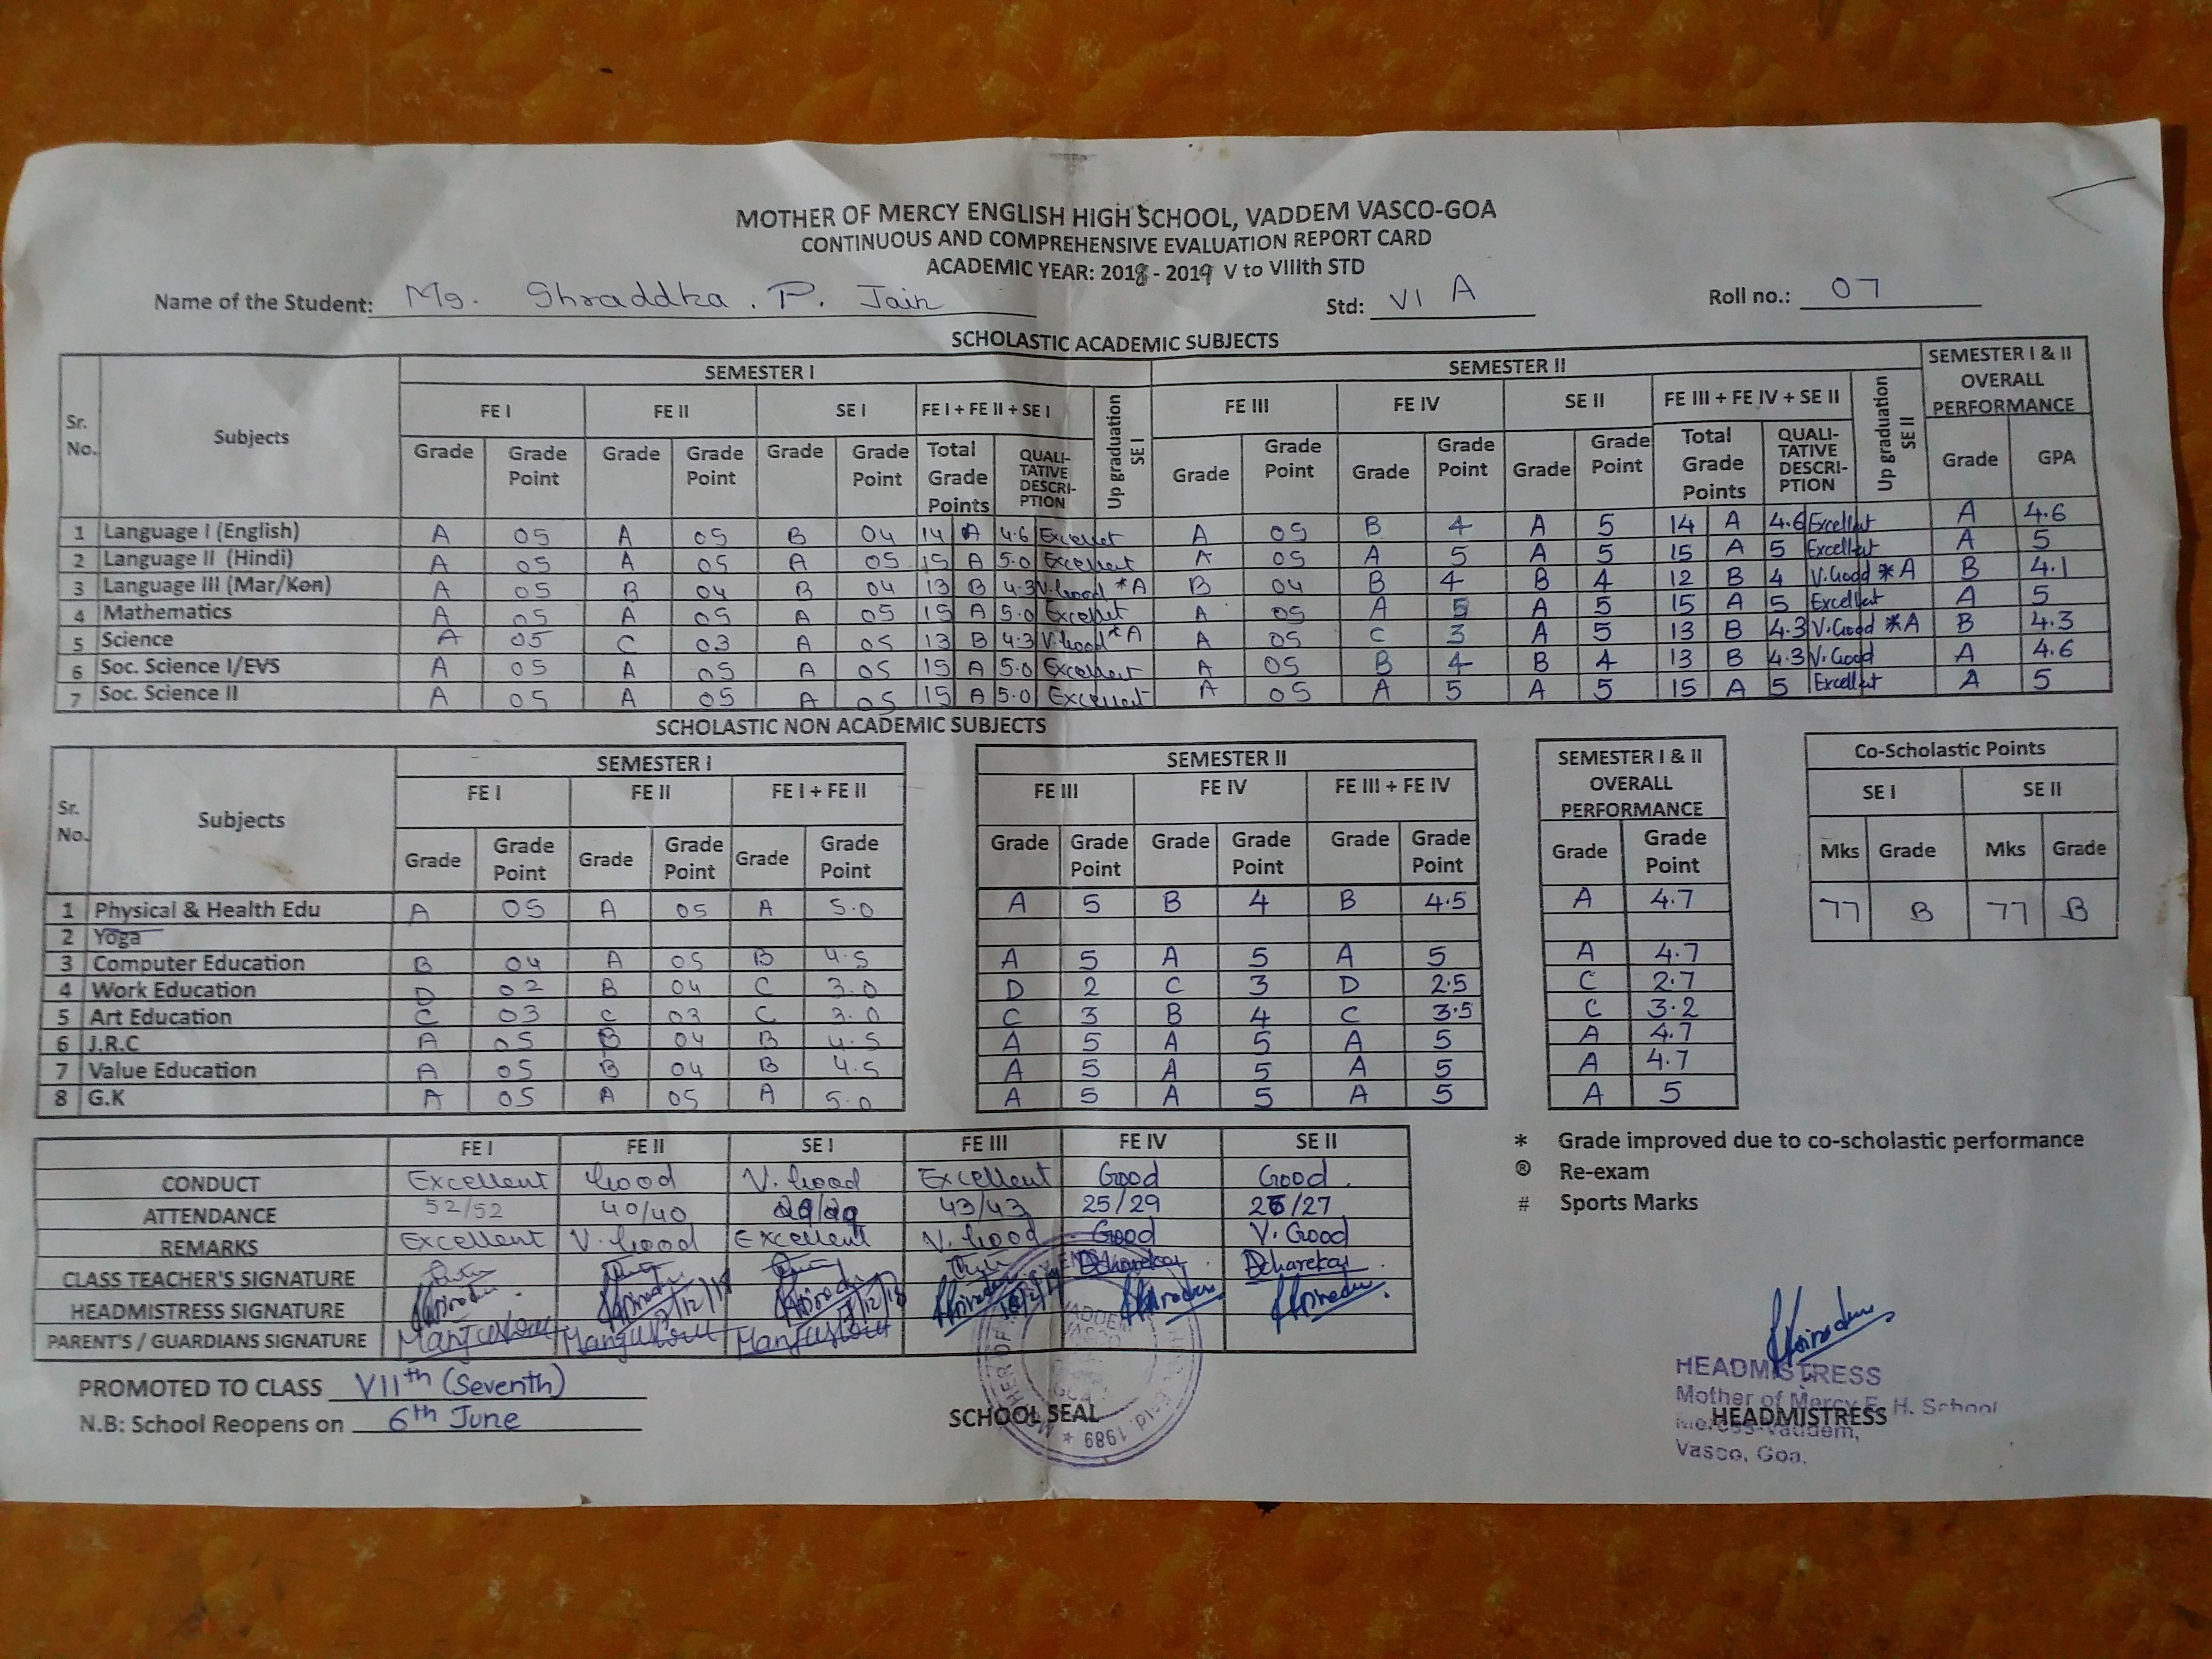 MOTHER OF MERCY ENGLISH HIGH SCHOOL, VADDEM VASCO-GOA
CONTINUOUS AND COMPREHENSIVE EVALUATION REPORT CARD
ACADEMIC YEAR: 2018 - 2019 V to VIIIth STD
Name of the Student: Ms. Shraddha . P. Jain Std: VI A Roll no.: 07
SCHOLASTIC ACADEMIC SUBJECTS
Sr. No. Subjects SEMESTER I SEMESTER II SEMESTER I & II OVERALL PERFORMANCE
FE I FE II SE I FE I + FE II + SE I Up graduation SE I FE III FE IV SE II FE III + FE IV + SE II Up graduation SE II
Grade Grade Point Grade Grade Point Grade Grade Point Total Grade Points QUALI-TATIVE DESCRI-PTION Grade Grade Point Grade Grade Point Grade Grade Point Total Grade Points QUALI-TATIVE DESCRI-PTION Grade GPA
1 Language I (English) A 05 A 05 B 04 14 A 4.6 Excellent A 05 B 4 A 5 14 A 4.6 Excellent A 4.6
2 Language II (Hindi) A 05 A 05 A 05 15 A 5.0 Excellent A 05 A 5 A 5 15 A 5 Excellent A 5
3 Language III (Mar/Kon) A 05 B 04 B 04 13 B 4.3 V.Good *A B 04 B 4 B 4 12 B 4 V.Good *A B 4.1
4 Mathematics A 05 A 05 A 05 15 A 5.0 Excellent A 05 A 5 A 5 15 A 5 Excellent A 5
5 Science A 05 C 03 A 05 13 B 4.3 V.Good *A A 05 C 3 A 5 13 B 4.3 V.Good *A B 4.3
6 Soc. Science I/EVS A 05 A 05 A 05 15 A 5.0 Excellent A 05 B 4 B 4 13 B 4.3 V.Good A 4.6
7 Soc. Science II A 05 A 05 A 05 15 A 5.0 Excellent A 05 A 5 A 5 15 A 5 Excellent A 5
SCHOLASTIC NON ACADEMIC SUBJECTS
Sr. No. Subjects SEMESTER I SEMESTER II SEMESTER I & II OVERALL PERFORMANCE Co-Scholastic Points
FE I FE II FE I + FE II FE III FE IV FE III + FE IV SE I SE II
Grade Grade Point Grade Grade Point Grade Grade Point Grade Grade Point Grade Grade Point Grade Grade Point Grade Grade Point Mks Grade Mks Grade
1 Physical & Health Edu A 05 A 05 A 5.0 A 5 B 4 B 4.5 A 4.7 77 B 77 B
2 Yoga
3 Computer Education B 04 A 05 B 4.5 A 5 A 5 A 5 A 4.7
4 Work Education D 02 B 04 C 3.0 D 2 C 3 D 2.5 C 2.7
5 Art Education C 03 C 03 C 3.0 C 3 B 4 C 3.5 C 3.2
6 J.R.C A 05 B 04 B 4.5 A 5 A 5 A 5 A 4.7
7 Value Education A 05 B 04 B 4.5 A 5 A 5 A 5 A 4.7
8 G.K A 05 A 05 A 5.0 A 5 A 5 A 5 A 5
FE I FE II SE I FE III FE IV SE II
CONDUCT Excellent Good V. Good Excellent Good Good.
ATTENDANCE 52/52 40/40 43/43 25/29 /27
REMARKS Excellent V. Good Excellent V. Good Good V. Good
CLASS TEACHER'S SIGNATURE
HEADMISTRESS SIGNATURE
PARENT'S / GUARDIANS SIGNATURE
* Grade improved due to co-scholastic performance
® Re-exam
# Sports Marks
PROMOTED TO CLASS VIIth (Seventh)
N.B: School Reopens on 6th June
SCHOOL SEAL
HEADMISTRESS
HEADMISTRESS
Mother of Mercy E. H. School
Vaddem,
Vasco, Goa.
1989